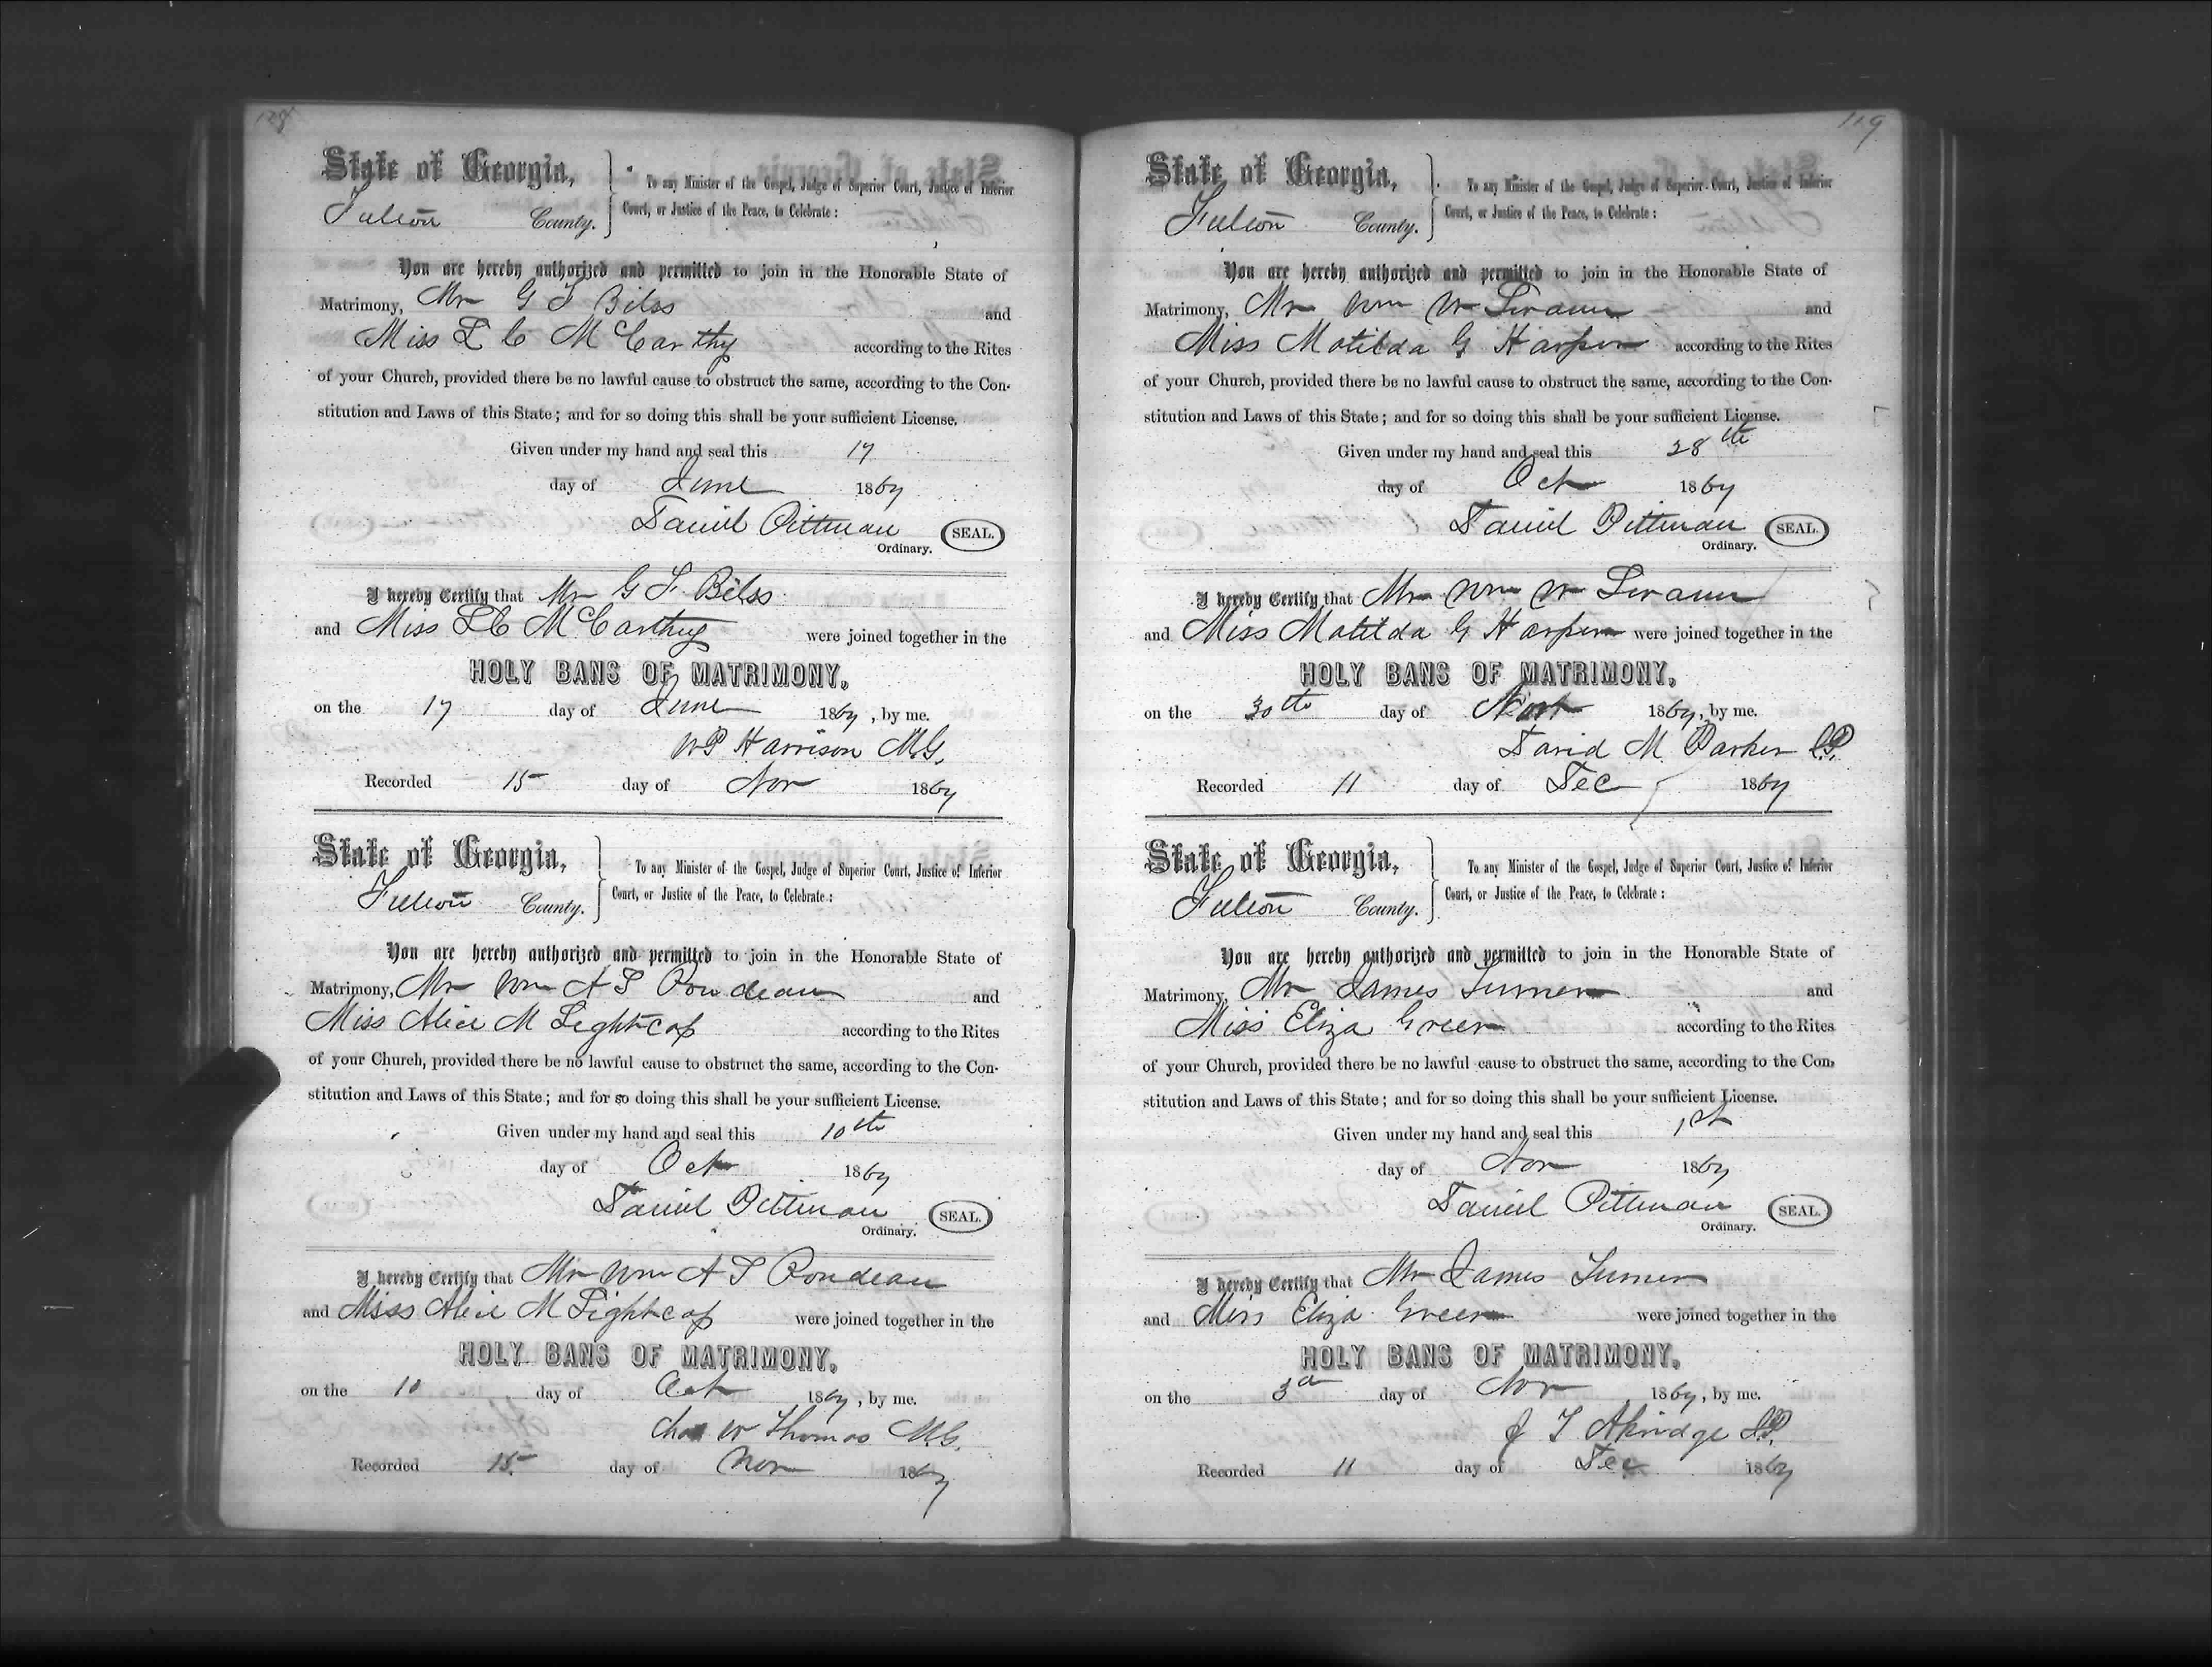 State of Georgia,
Fulton County.
To any Minister of the Gospel, Judge of Superior Court, Justice of Inferior
Court, or Justice of the Peace, to Celebrate:
You are hereby authorized and permitted to join in the Honorable State of
Matrimony, Mr G F Bilss and
Miss L C McCarthy according to the Rites
of your Church, provided there be no lawful cause to obstruct the same, according to the Con-
stitution and Laws of this State; and for so doing this shall be your sufficient License.
Given under my hand and seal this 17
day of June 1867
Daniel Pittman SEAL.
Ordinary.
I hereby Certify that Mr G F Bilss
and Miss L C McCarthy were joined together in the
HOLY BANS OF MATRIMONY,
on the 17 day of June 1867, by me.
W P Harrison M.G.
Recorded 15 day of Nov 1867
State of Georgia,
Fulton County.
To any Minister of the Gospel, Judge of Superior Court, Justice of Inferior
Court, or Justice of the Peace, to Celebrate:
You are hereby authorized and permitted to join in the Honorable State of
Matrimony, Mr Wm A S Rondeau and
Miss Alice M Lightcap according to the Rites
of your Church, provided there be no lawful cause to obstruct the same, according to the Con-
stitution and Laws of this State; and for so doing this shall be your sufficient License.
Given under my hand and seal this 10th
day of Oct 1867
Daniel Pittman SEAL.
Ordinary.
I hereby Certify that Mr Wm A S Rondeau
and Miss Alice M Lightcap were joined together in the
HOLY BANS OF MATRIMONY,
on the 10 day of Oct 1867, by me.
Chas W Thomas M.G.
Recorded 15 day of Nov 1867
119
State of Georgia,
Fulton County.
To any Minister of the Gospel, Judge of Superior Court, Justice of Inferior
Court, or Justice of the Peace, to Celebrate:
You are hereby authorized and permitted to join in the Honorable State of
Matrimony, Mr Wm W Swann and
Miss Matilda G Harper according to the Rites
of your Church, provided there be no lawful cause to obstruct the same, according to the Con-
stitution and Laws of this State; and for so doing this shall be your sufficient License.
Given under my hand and seal this 28th
day of Oct 1867
Daniel Pittman SEAL.
Ordinary.
I hereby Certify that Mr Wm W Swann
and Miss Matilda G Harper were joined together in the
HOLY BANS OF MATRIMONY,
on the 30th day of 1867, by me.
David M Parker J.P.
Recorded 11 day of Dec 1867
State of Georgia,
Fulton County.
To any Minister of the Gospel, Judge of Superior Court, Justice of Inferior
Court, or Justice of the Peace, to Celebrate:
You are hereby authorized and permitted to join in the Honorable State of
Matrimony, Mr James Turner and
Miss Eliza Green according to the Rites
of your Church, provided there be no lawful cause to obstruct the same, according to the Con-
stitution and Laws of this State; and for so doing this shall be your sufficient License.
Given under my hand and seal this 1st
day of Nov 1867
Daniel Pittman SEAL.
Ordinary.
I hereby Certify that Mr James Turner
and Miss Eliza Green were joined together in the
HOLY BANS OF MATRIMONY,
on the 3d day of Nov 1867, by me.
J T Akridge J.P.
Recorded 11 day of Dec 1867